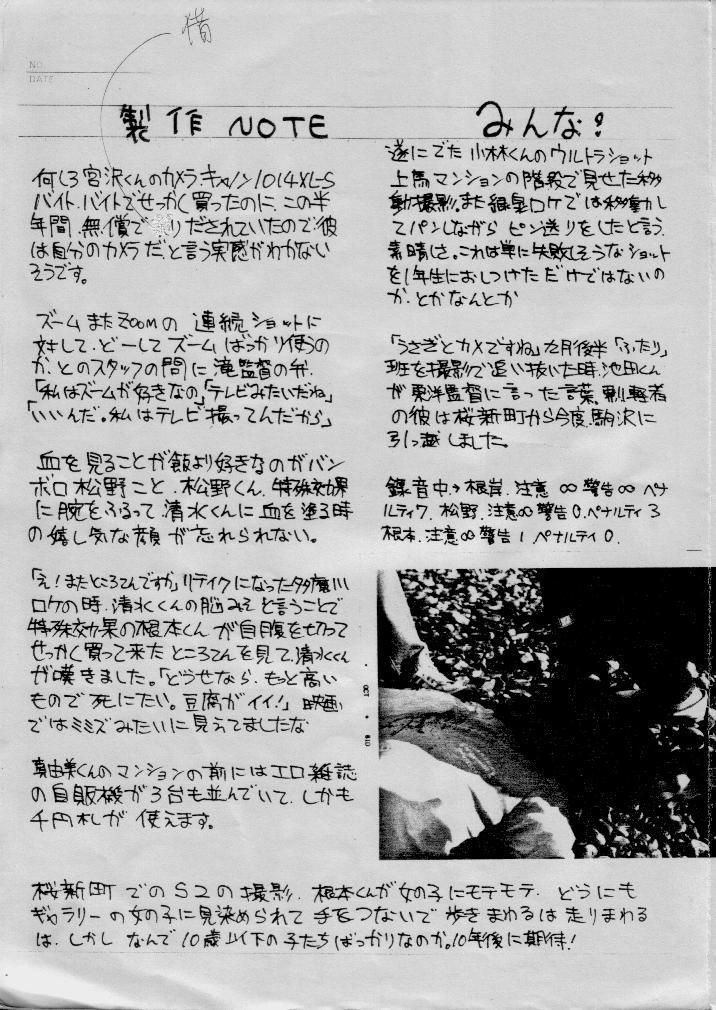 借
NO.
DATE
製作 NOTE
何しろ宮沢くんのカメラキャノン1014XL-S
バイト.バイトでせっかく買ったのに、この半
年間.無償で りだされていたので彼
は自分のカメラだ、と言う実感がわかない
そうです。
ズームまたZOOMの 連続ショットに
対して.どーしてズームばっかり使うの
か、とのスタッフの問に滝監督の弁.
「私はズームが好きなの」「テレビみたいだね」
「いいんだ。私はテレビ撮ってんだから」
血を見ることが飯より好きなのがバン
ボロ松野こと.松野くん.特殊効果
に腕をふるって.清水くんに血を塗る時
の嬉し気な顔が忘れられない。
「え!またところてんですか」リテイクになった多摩川
ロケの時.清水くんの脳みそと言うことで
特殊効果の根本くんが自腹を切って
せっかく買って来たところてんを見て.清水くん
が嘆きました。「どうせなら.もっと高い
もので死にたい。豆腐がイイ!」映画
ではミミズみたいに見えてましたな
真由美くんのマンションの前にはエロ雑誌
の自販機が3台も並んでいて.しかも
千円札が使えます。
みんな!
遂にでた小林くんのウルトラショット
上馬マンションの階段で見せた移
動撮影.また銀星ロケでは移動し
てパンしながらピン送りをしたと言う.
素晴しさ。これは単に失敗しそうなショット
を1年生におしつけただけではないの
か.とかなんとか
「うさぎとカメですね」九月後半「ふたり」
班を撮影で追い抜いた時.池田くん
が東洋監督に言った言葉.剽軽者
の彼は桜新町から今度.駒沢に
引っ越しました。
録音中→根岸.注意∞警告∞ペナ
ルティ7.松野.注意∞警告0.ペナルティ3
根本.注意∞警告1.ペナルティ0.
桜新町でのS2の撮影.根本くんが女の子にモテモテ.どうにも
ギャラリーの女の子に見染められて手をつないで歩きまわるは走りまわる
は.しかしなんで10歳以下の子たちばっかりなのか。10年後に期待!